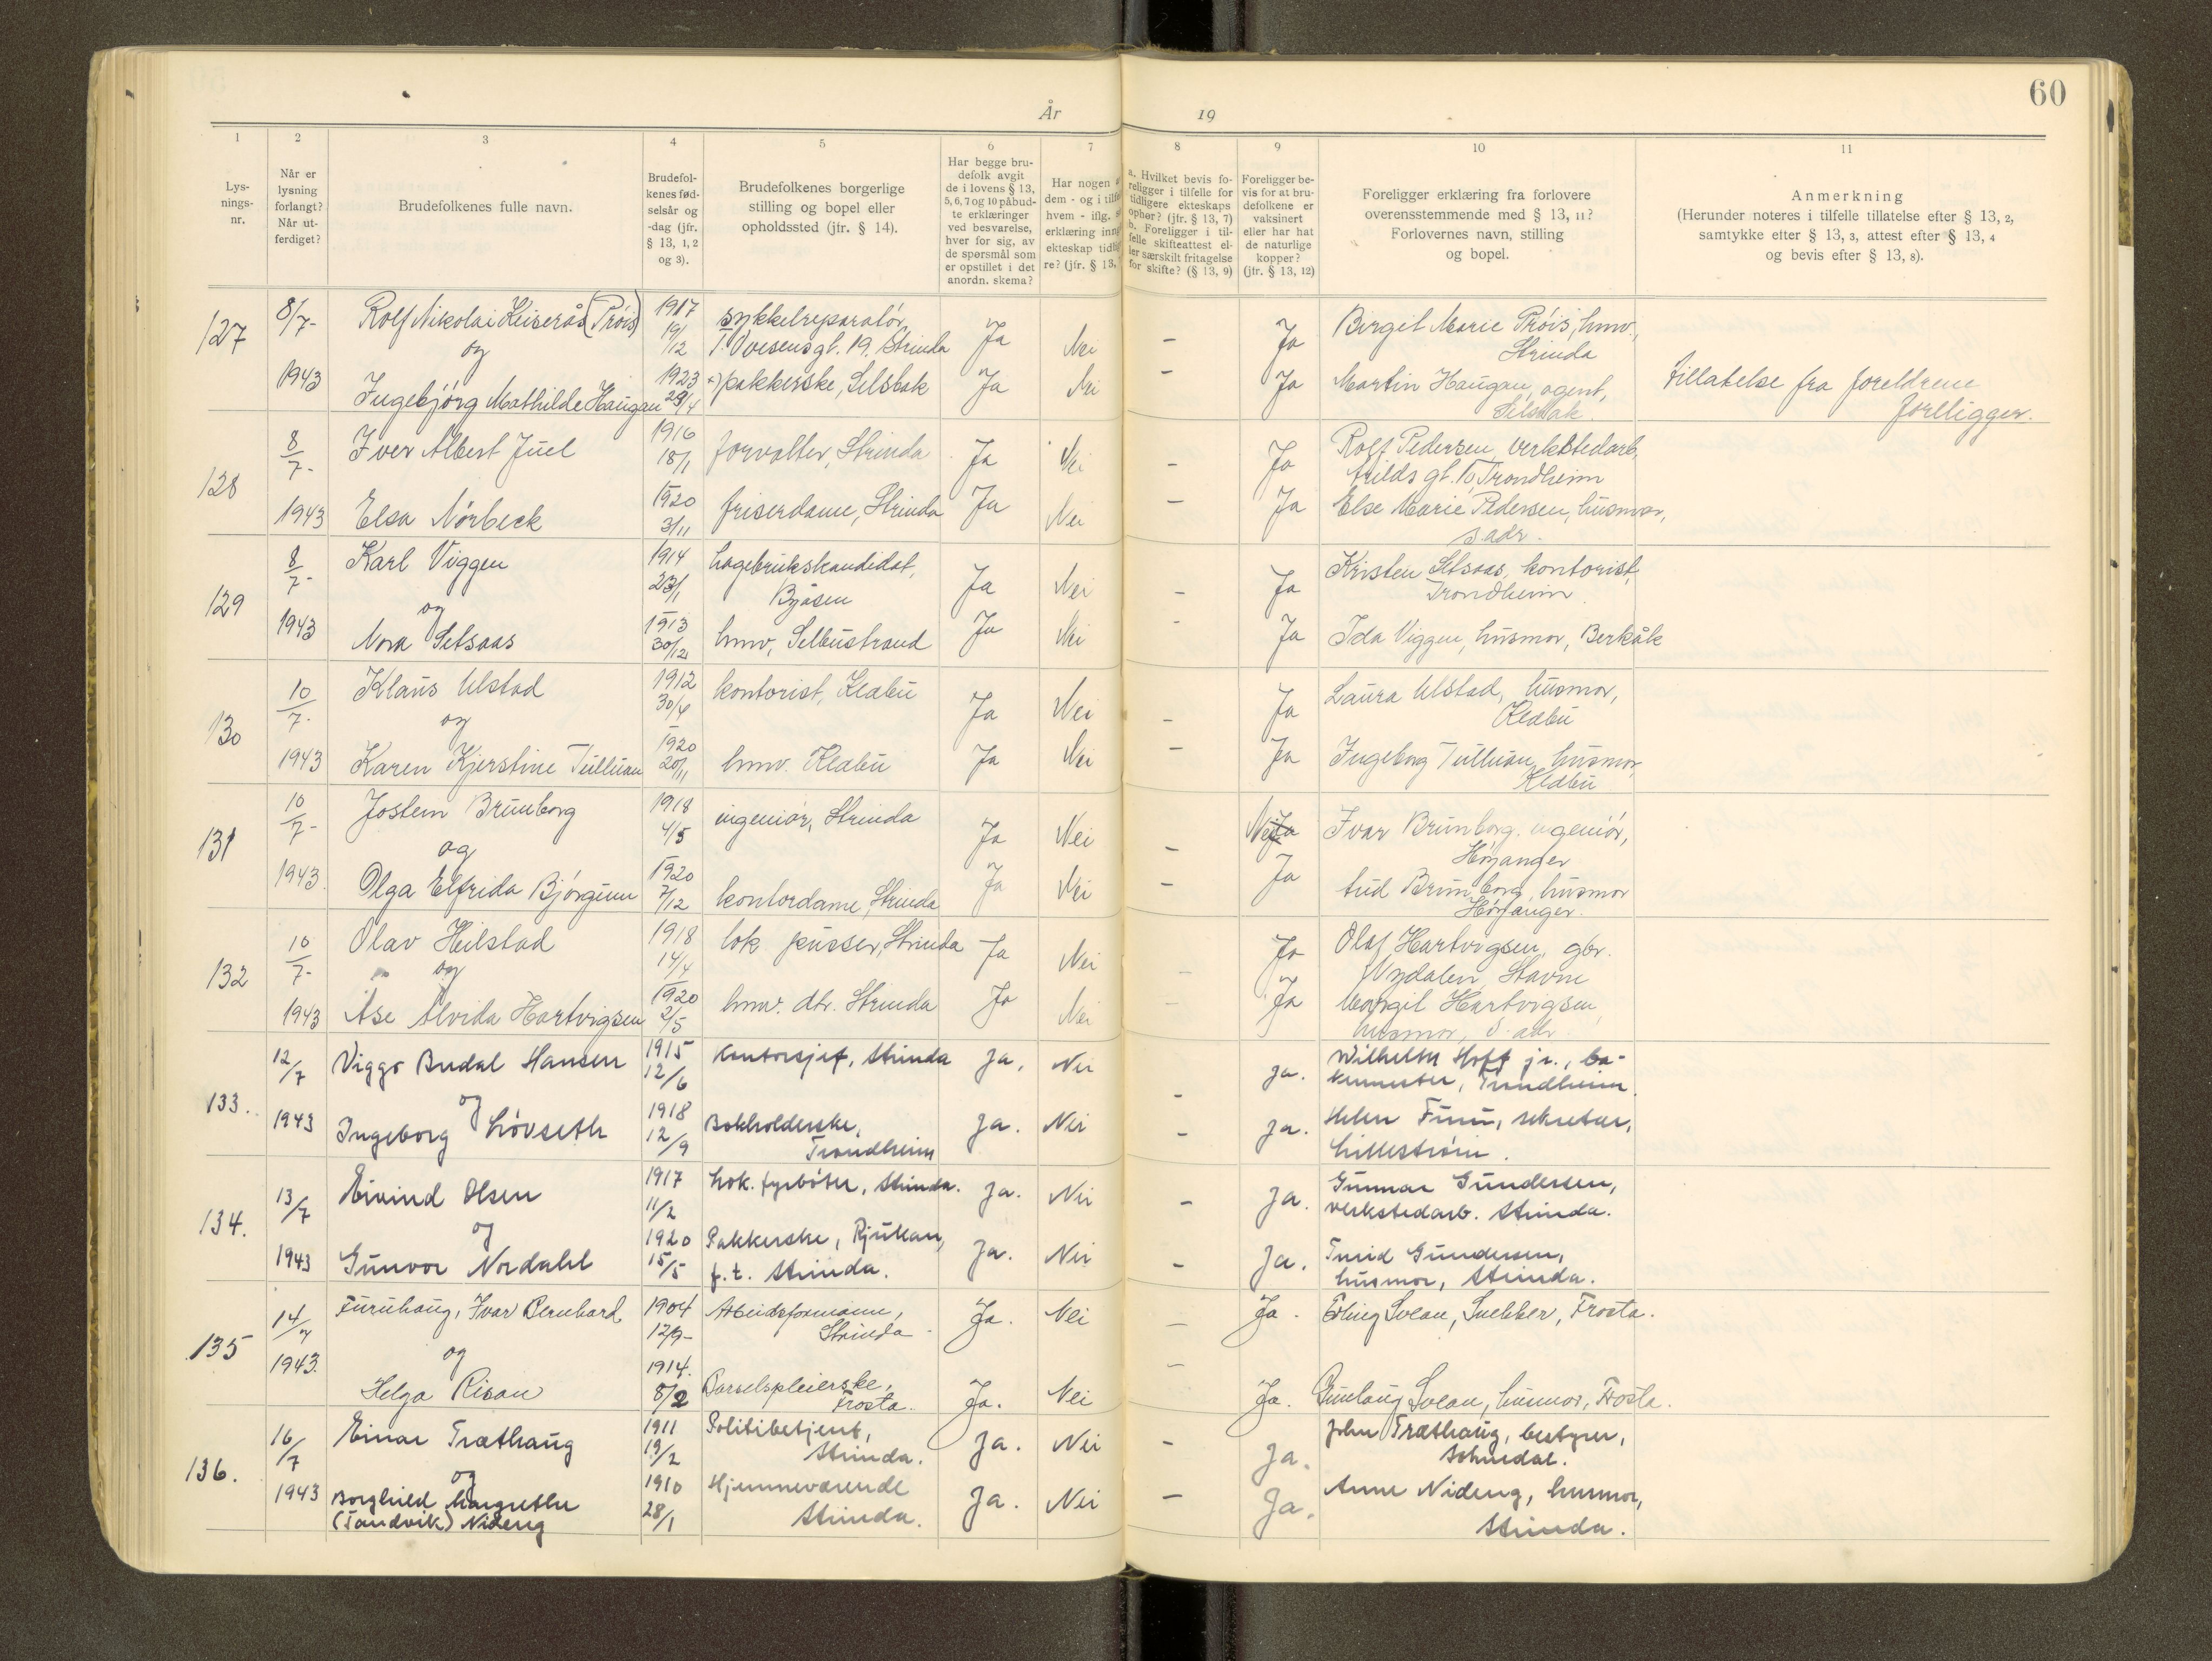 60
År 19
1 2 3 4 5 6 7 8 9 10 11
Lys-
nings-
nr.
Når er
lysning
forlangt?
Når ut-
ferdiget?
Brudefolkenes fulle navn.
Brudefol-
kenes fød-
selsår og
-dag (jfr.
§ 13, 1, 2
og 3).
Brudefolkenes borgerlige
stilling og bopel eller
opholdssted (jfr. § 14).
Har begge bru-
defolk avgit
de i lovens § 13,
5, 6, 7 og 10 påbud-
te erklæringer
ved besvarelse,
hver for sig, av
de spørsmål som
er opstillet i det
anordn. skema?
Har nogen
dem - og i tilfe
hvem - iflg.
erklæring inng
ekteskap tidli
re? (jfr. § 13,
a. Hvilket bevis fo-
religger i tilfelle for
tidligere ekteskaps
ophør? (jfr. § 13, 7)
b. Foreligger i til-
felle skifteattest el-
ler særskilt fritagelse
for skifte? (§ 13, 9)
Foreligger be-
vis for at bru-
defolkene er
vaksinert
eller har hat
de naturlige
kopper?
(jfr. § 13, 12)
Foreligger erklæring fra forlovere
overensstemmende med § 13, 11?
Forlovernes navn, stilling
og bopel.
Anmerkning
(Herunder noteres i tilfelle tillatelse efter § 13, 2,
samtykke efter § 13, 3, attest efter § 13, 4
og bevis efter § 13, 8).
127 8/7- 1943
Rolf Nikolai Keiserås (Prøis)
og
Ingebjørg Mathilde Haugan
1917 19/12
1923 29/4
sykkelreparatør,
gt. 19. Strinda
x) pakkerske, Selsbak
Ja Nei - Ja
Ja Nei - Ja
Birgit Marie Prøis, hmv.,
Strinda
Martin Haugan, agent,
Selsbak
Tillatelse fra foreldrene
foreligger.
128 8/7- 1943
Iver Albert Juel
Elsa Nørbeck
1916 18/1
1920 3/11
forvalter, Strinda
friserdame, Strinda
Ja Nei - Ja
Ja Nei - Ja
Rolf Pedersen, verkstedarb,
gt. 10, Trondheim
Else Marie Pedersen, husmor,
s. adr.
129 8/7- 1943
Karl Viggen
og
Nora Setsaas
1914 23/1
1913 30/12
hagebrukskandidat,
Byåsen
hmv, Selbustrand
Ja Nei - Ja
Ja Nei - Ja
Kristen Setsaas, kontorist,
Trondheim
Ida Viggen, husmor, Berkåk
130 10/7- 1943
Klaus Ulstad
og
Karen Kjerstine Tulluan
1912 30/4
1920 20/11
kontorist, Klæbu
hmv. Klæbu
Ja Nei - Ja
Ja Nei - Ja
Laura Ulstad, husmor,
Klæbu
Ingeborg Tulluan, husmor,
Klæbu
131 10/7- 1943.
Jostein Brunborg
og
Olga Elfrida Bjørgum
1918 4/5
1920 7/12
ingeniør, Strinda
kontordame, Strinda
Ja Nei - Nei Ja
Ja Nei - Ja
Ivar Brunborg. ingeniør,
Høyanger
Brunborg, husmor
Høyanger.
132 10/7- 1943
Olav Heilstad
og
Åse Alvida Hartvigsen
1918 14/4
1920 2/5
lok. pusser, Strinda
hmv. dtr. Strinda
Ja Nei - Ja
Ja Nei - Ja
Olaf Hartvigsen, gbr.
Nydalen, Stavne
Margit Hartvigsen,
husmor, s. adr.
133. 12/7 1943
Viggo Budal Hansen
og
Ingeborg Løvseth
1915 12/6
1918 12/9
Kontorsjef, Strinda
Bokholderske,
Trondheim
Ja, Nei - Ja.
Ja. Nei - Ja.
Wilhelm Hoff jr., ba-
kermester, Trondheim.
Helen Finn, sekretær,
Lillestrøm.
134. 13/7 1943
Eivind Olsen
og
Gunvor Nordahl
1917 11/2
1920 15/5
Lok. fyrbøter, Strinda.
Pakkerske, Rjukan,
f. t. Strinda.
Ja. Nei - Ja.
Ja. Nei - Ja.
Gunnar Gundersen,
verkstedarb. Strinda.
Turid Gundersen,
husmor, Strinda.
135 14/7 1943.
Furuhaug, Ivar Bernhard
og
Helga Risan
1904 12/9-
1914. 8/2
Arbeidsformann,
Strinda
Barselspleierske,
Frosta.
Ja. Nei - Ja.
Ja. Nei - Ja.
Erling Svean, Snekker, Frosta.
Gunlaug Svean, husmor, Frosta.
136. 16/7 1943
Einar Træthaug
og
Borghild Margrethe
(Tandvik) Nideng
1911 19/2
1910 28/1
Politibetjent,
Strinda.
Hjemmeværende
Strinda.
Ja. Nei - Ja.
Ja. Nei - Ja.
John Træthaug, bestyrer,
Soknedal.
Anne Nideng, husmor,
Strinda.